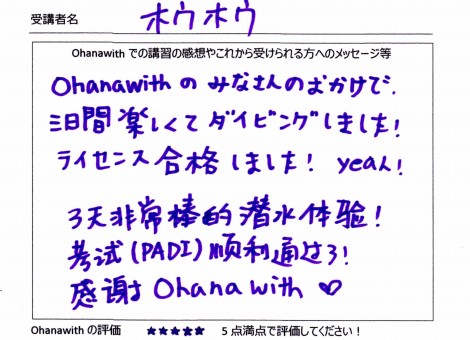 受講者名 ホウホウ
Ohanawith での講習の感想やこれから受けられる方へのメッセージ等
Ohanawith の みなさんのおかげで.
三日間 楽しくて ダイビングしました!
ライセンス 合格しました! yeah!
3天非常棒的潜水体验!
考试(PADI)顺利通过了!
感谢 Ohana with ♡
Ohanawith の評価 ★★★★★ 5 点満点で評価してください!